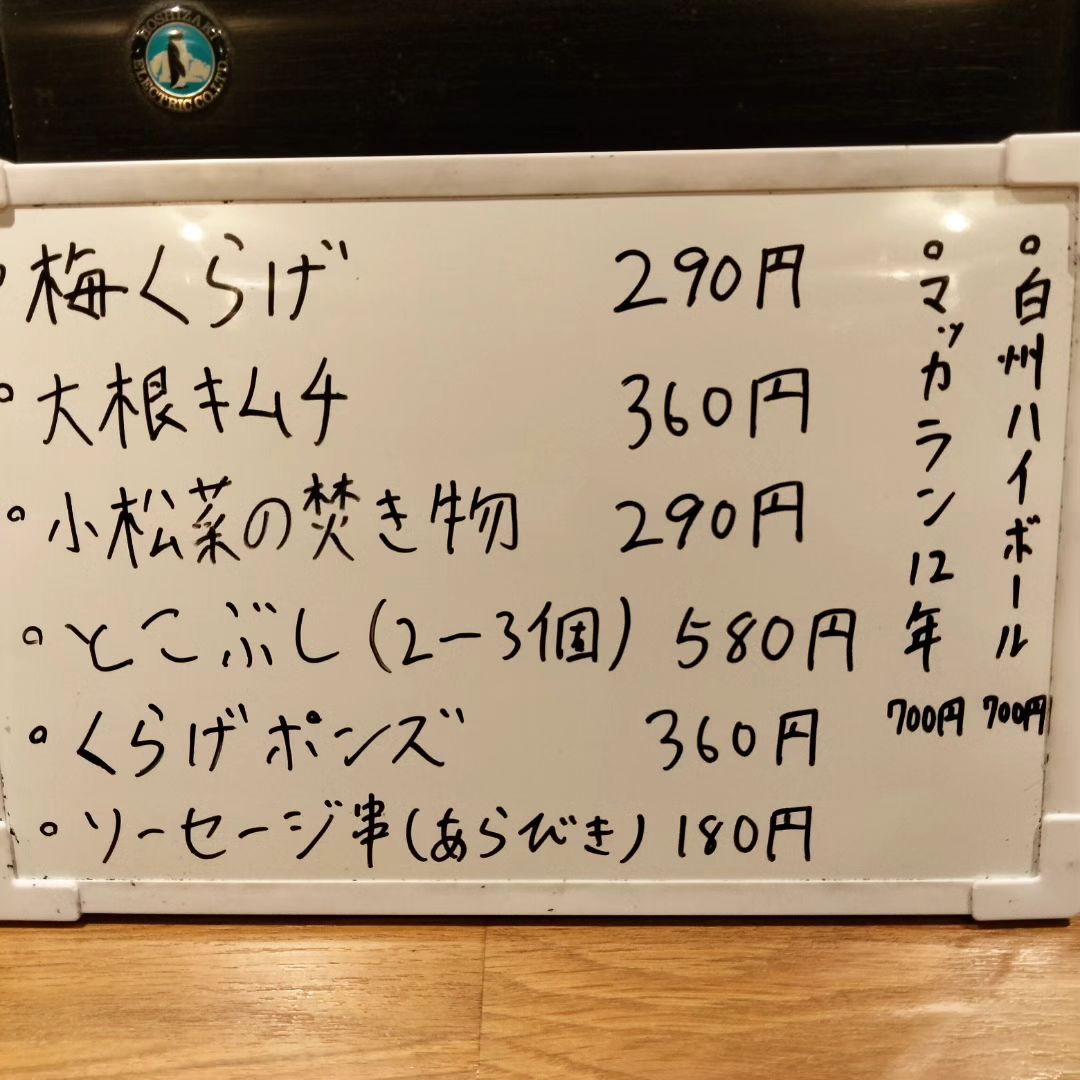 HOSHIZAKI ELECTRIC CO.,LTD.
梅くらげ 290円
大根キムチ 360円
小松菜の焚き物 290円
とこぶし(2ー3個) 580円
くらげポンズ 360円
ソーセージ串(あらびき) 180円
白州ハイボール 700円
マッカラン12年 700円